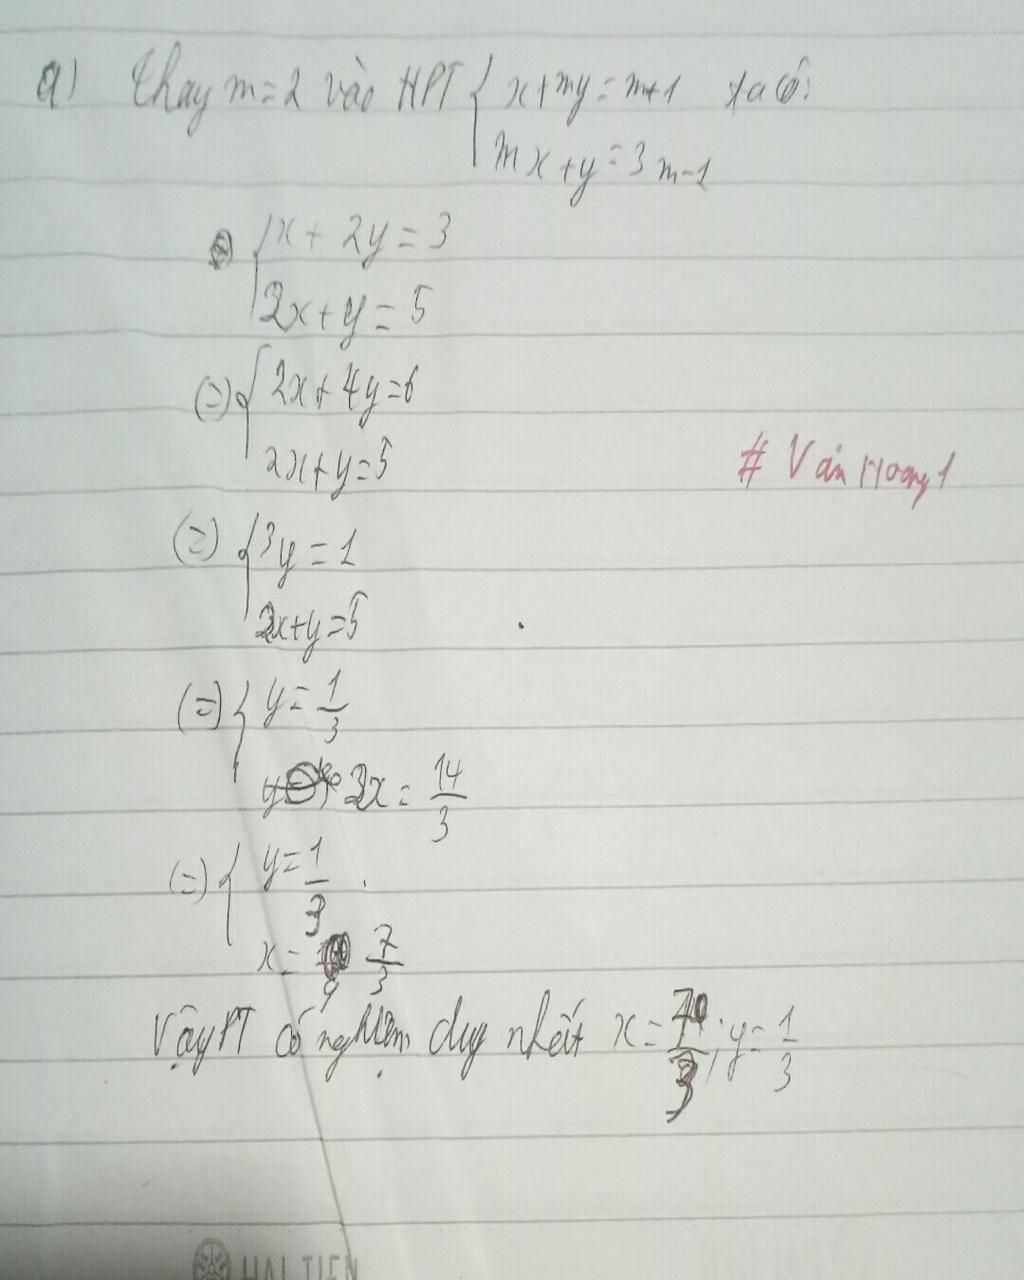 a) Thay m=2 vào HPT { x+my=m+1 ta có:
mx+y=3m-1
{ x+2y=3
2x+y=5
(=) { 2x+4y=6
2x+y=5
# Vân Hoang1
(=) { 3y=1
2x+y=5
(=) { y=1/3
2x=14/3
(=) { y=1/3
x= 7/3
Vậy PT có nghiệm duy nhất x=7/3; y=1/3
HẢI TIẾN